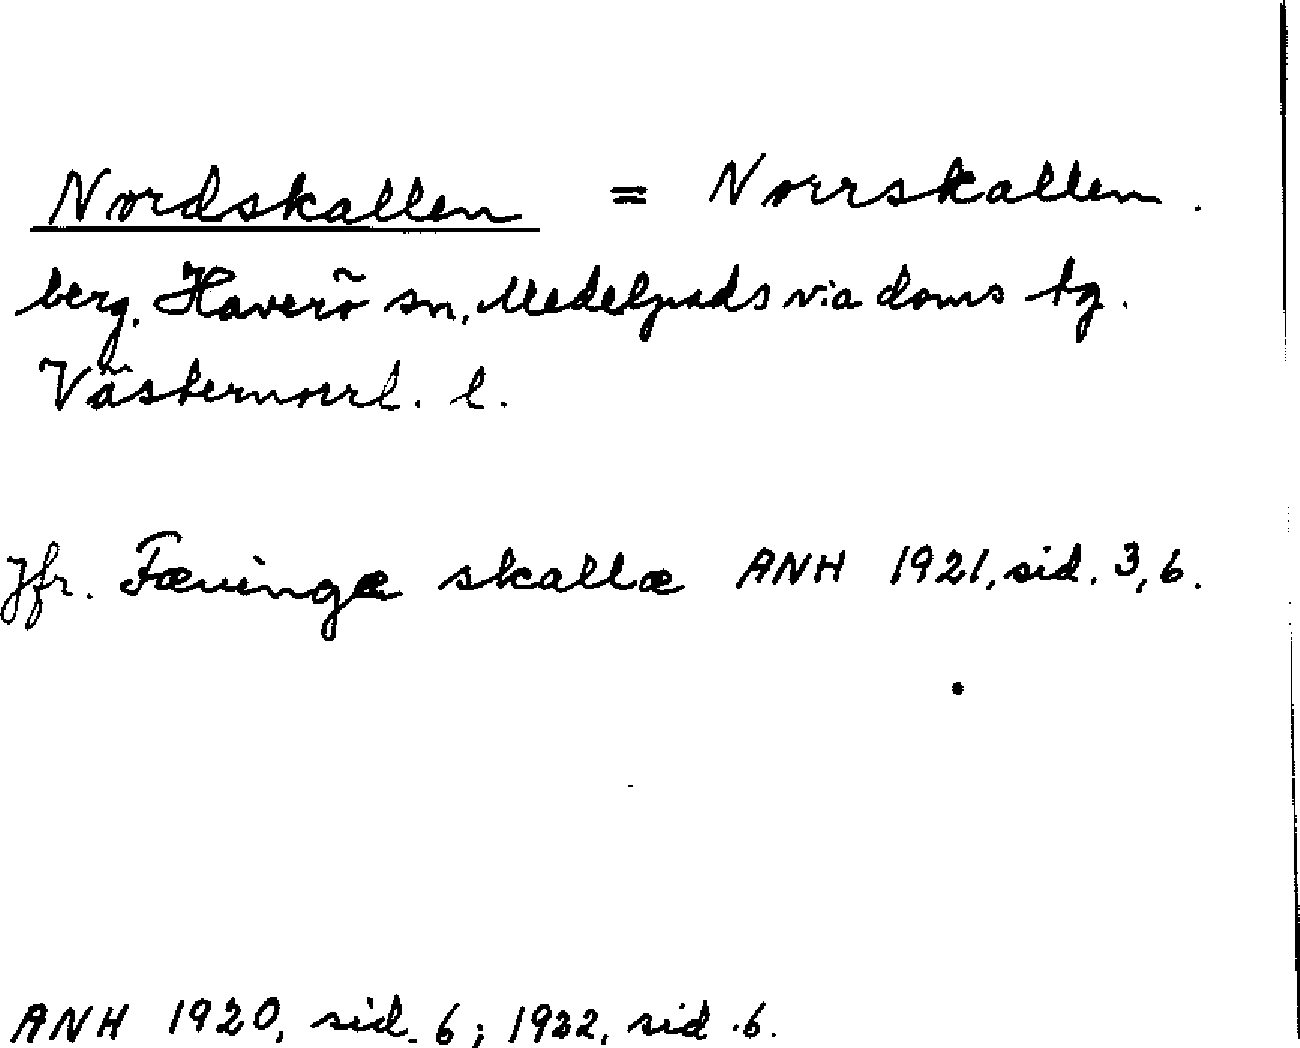 Nordskallen = Norrskallen.
berg. Haverö sn, Medelpads v:a doms tg.
Västernorrl. l.
Jfr. Fæuingæ skallæ ANH 1921, sid. 3, 6.
ANH 1920, sid. 6; 1922, sid. 6.